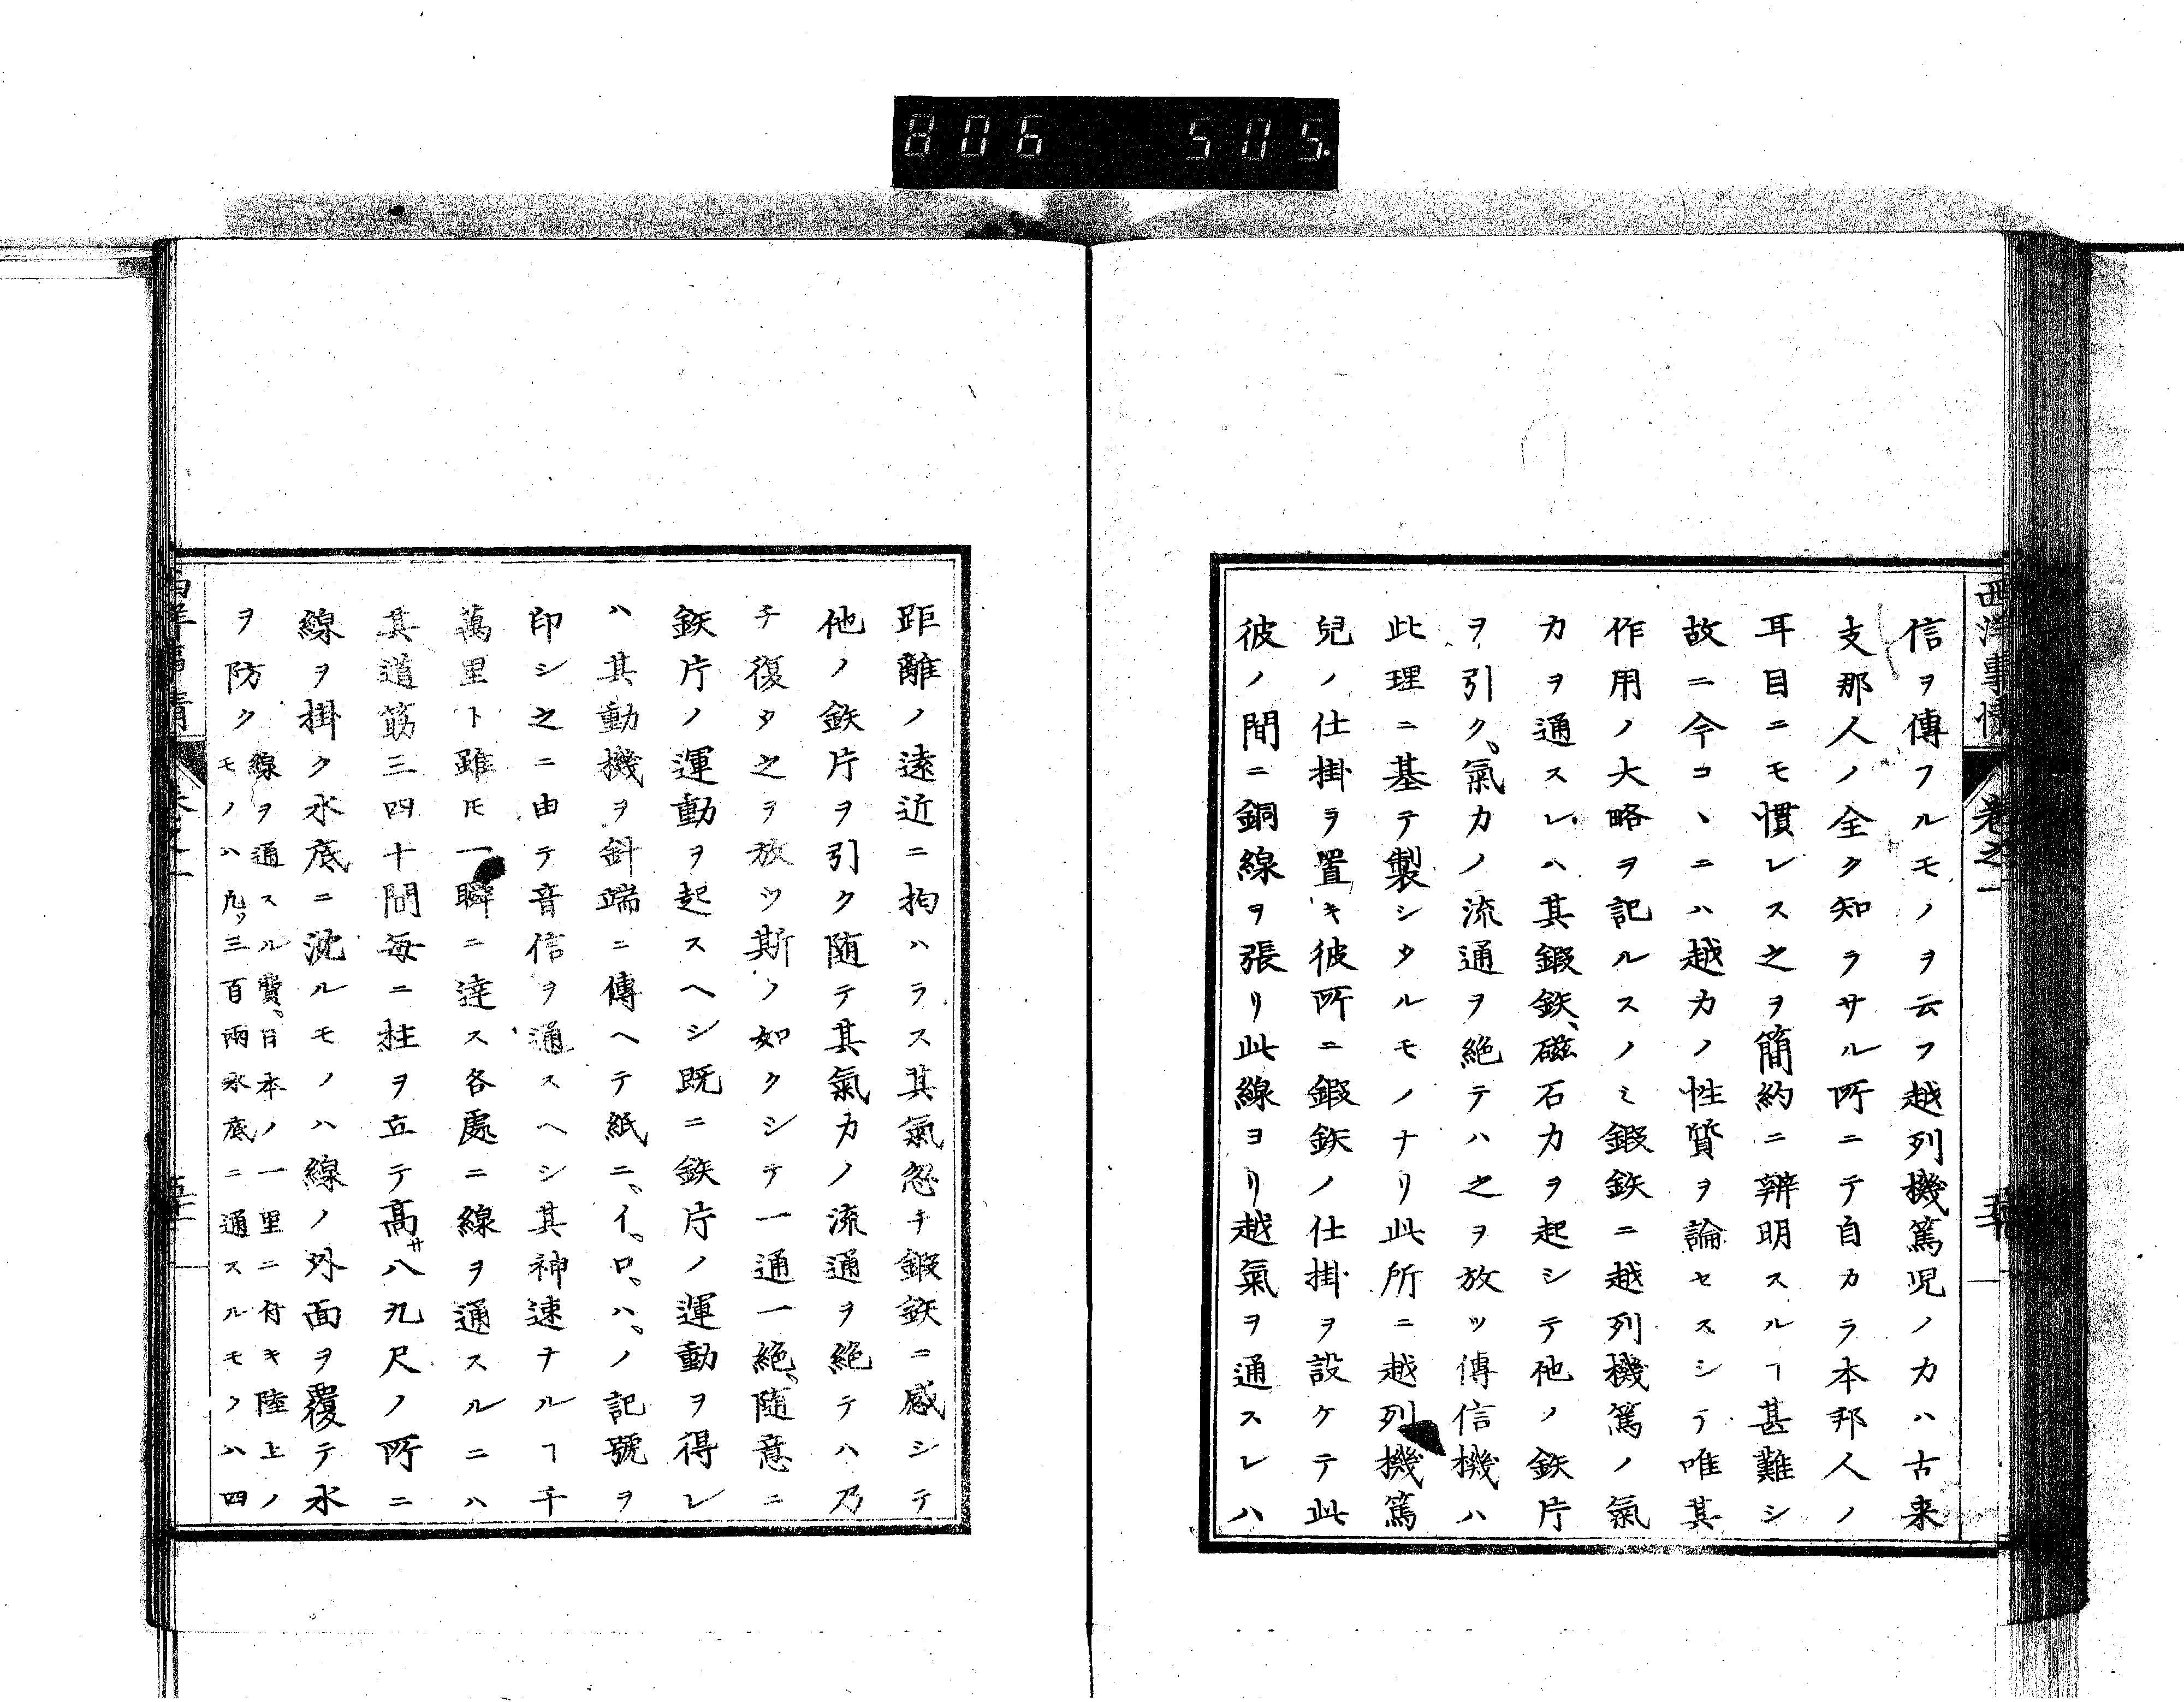 806 505.
西洋事情 卷之一
信ヲ傳フルモノヲ云フ越列機篤児ノカハ古来
支那人ノ全ク知ラサル所ニテ自カラ本邦人ノ
耳目ニモ慣レス之ヲ簡約ニ辨明スルヿ甚難シ
故ニ今コヽニハ越カノ性質ヲ論セスシテ唯其
作用ノ大略ヲ記ルスノミ鍛鉄ニ越列機篤ノ氣
力ヲ通スレハ其鍛鉄、磁石力ヲ起シテ他ノ鉄片
ヲ引ク、氣力ノ流通ヲ絶テハ之ヲ放ツ傳信機ハ
此理ニ基テ製シタルモノナリ此所ニ越列機篤
兒ノ仕掛ヲ置キ彼所ニ鍛鉄ノ仕掛ヲ設ケテ此
彼ノ間ニ銅線ヲ張リ此線ヨリ越氣ヲ通スレハ
距離ノ遠近ニ拘ハラス其氣忽チ鍛鉄ニ感シテ
他ノ鉄片ヲ引ク随テ其氣力ノ流通ヲ絶テハ乃
チ復タ之ヲ放ツ斯ノ如クシテ一通一絶、随意ニ
鉄片ノ運動ヲ起スヘシ既ニ鉄片ノ運動ヲ得レ
ハ其動機ヲ針端ニ傳ヘテ紙ニ、イ。ロ。ハ。ノ記號ヲ
印シ之ニ由テ音信ヲ通スヘシ其神速ナルヿ千
萬里ト雖𪜈一瞬ニ達ス各處ニ線ヲ通スルニハ
其道筋三四十間每ニ柱ヲ立テ高サ八九尺ノ所ニ
線ヲ掛ク水底ニ沈ルモノハ線ノ外面ヲ覆テ水
ヲ防ク 線ヲ通スル費。日本ノ一里ニ付キ陸上ノ
モノハ凡ソ三百兩水底ニ通スルモノハ四
西洋事情 卷之一 五十一